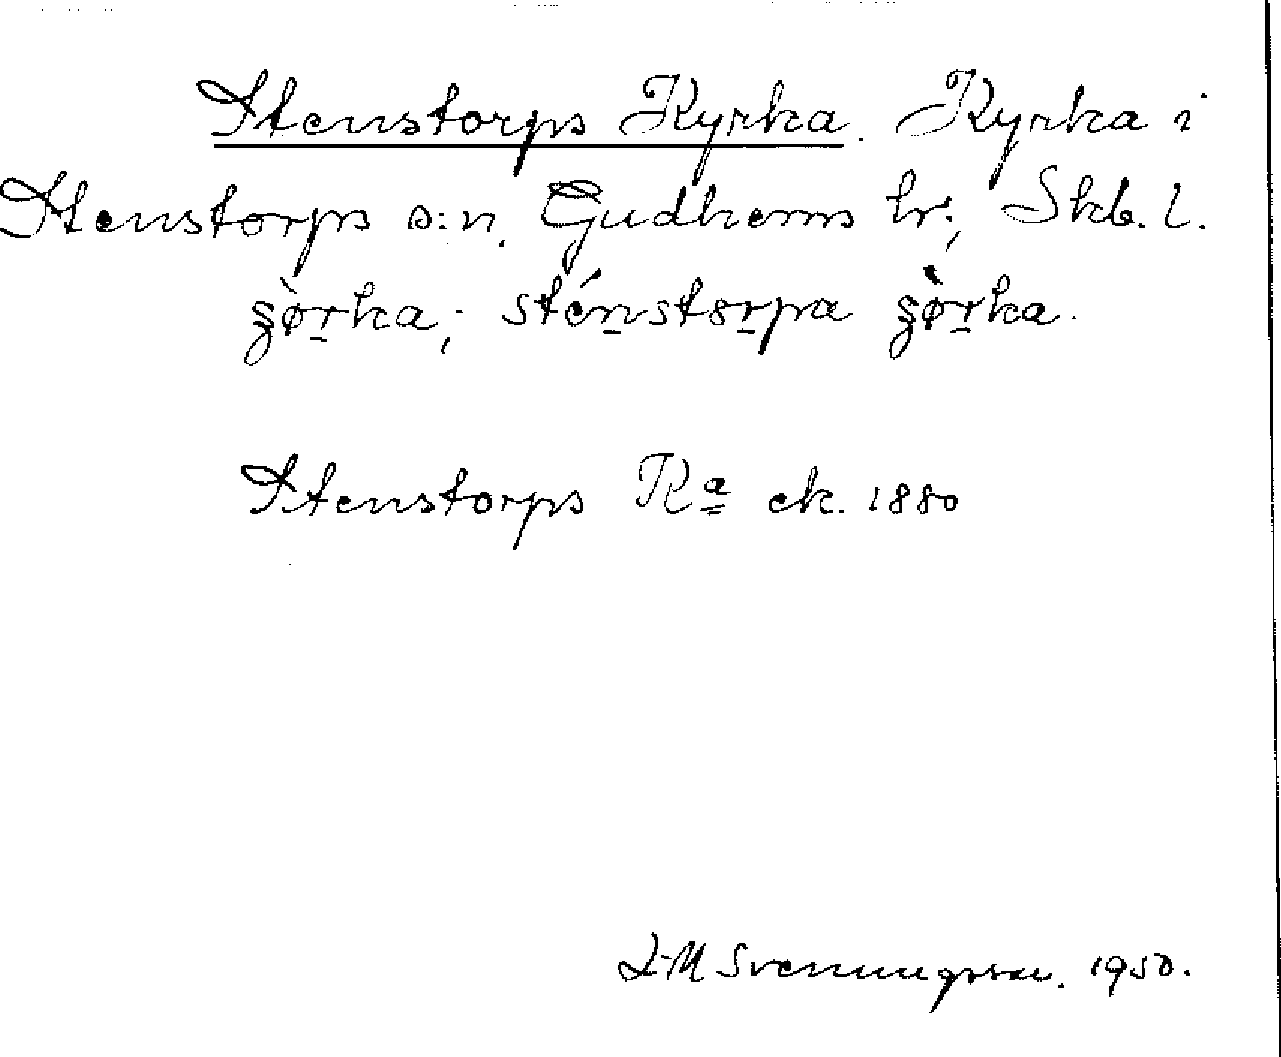 Stenstorps Kyrka. Kyrka i
Stenstorps s:n. Gudhems hr., Skb. l.
ʂø̀r̲ka; sténs̲torpa ʂø̀r̲ka.
Stenstorps Kª ek. 1880
L-M Svenungsson. 1950.